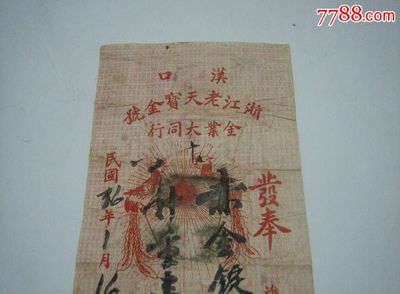 7788.com
漢口
浙江老天寶金號
金業大同行
發奉
赤金錠
民國36年1月